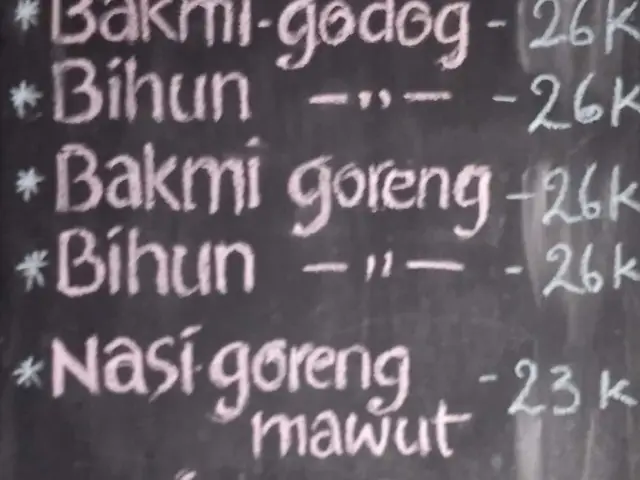 * Bakmi-godog - 26K
* Bihun —"— - 26K
* Bakmi goreng - 26K
* Bihun —"— - 26K
* Nasi goreng - 23K
mawut